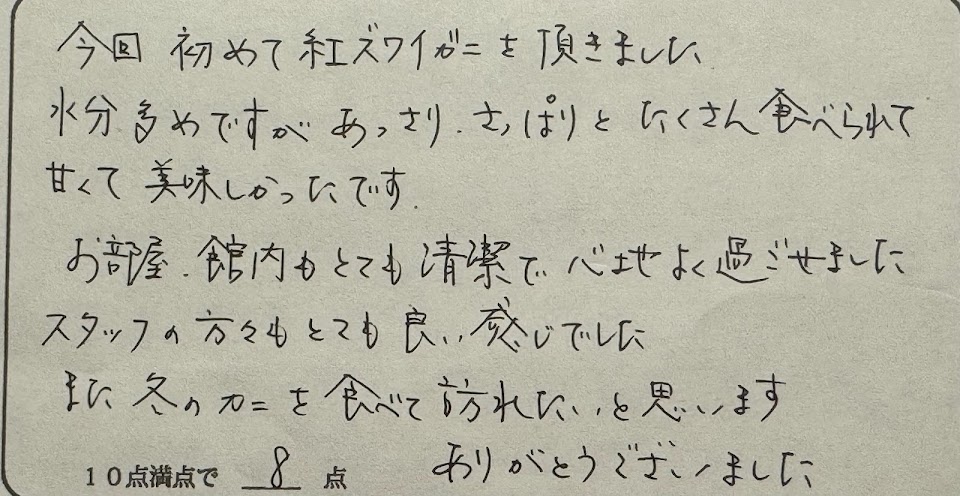 今回 初めて 紅ズワイガニを 頂きました
水分多めですが あっさり、さっぱりと たくさん食べられて
甘くて 美味しかったです。
お部屋、館内もとても清潔で 心地よく過ごせました
スタッフの方々もとても良い感じでした
また 冬のカニを食べて訪れたいと思います
10点満点で 8 点 ありがとうございました